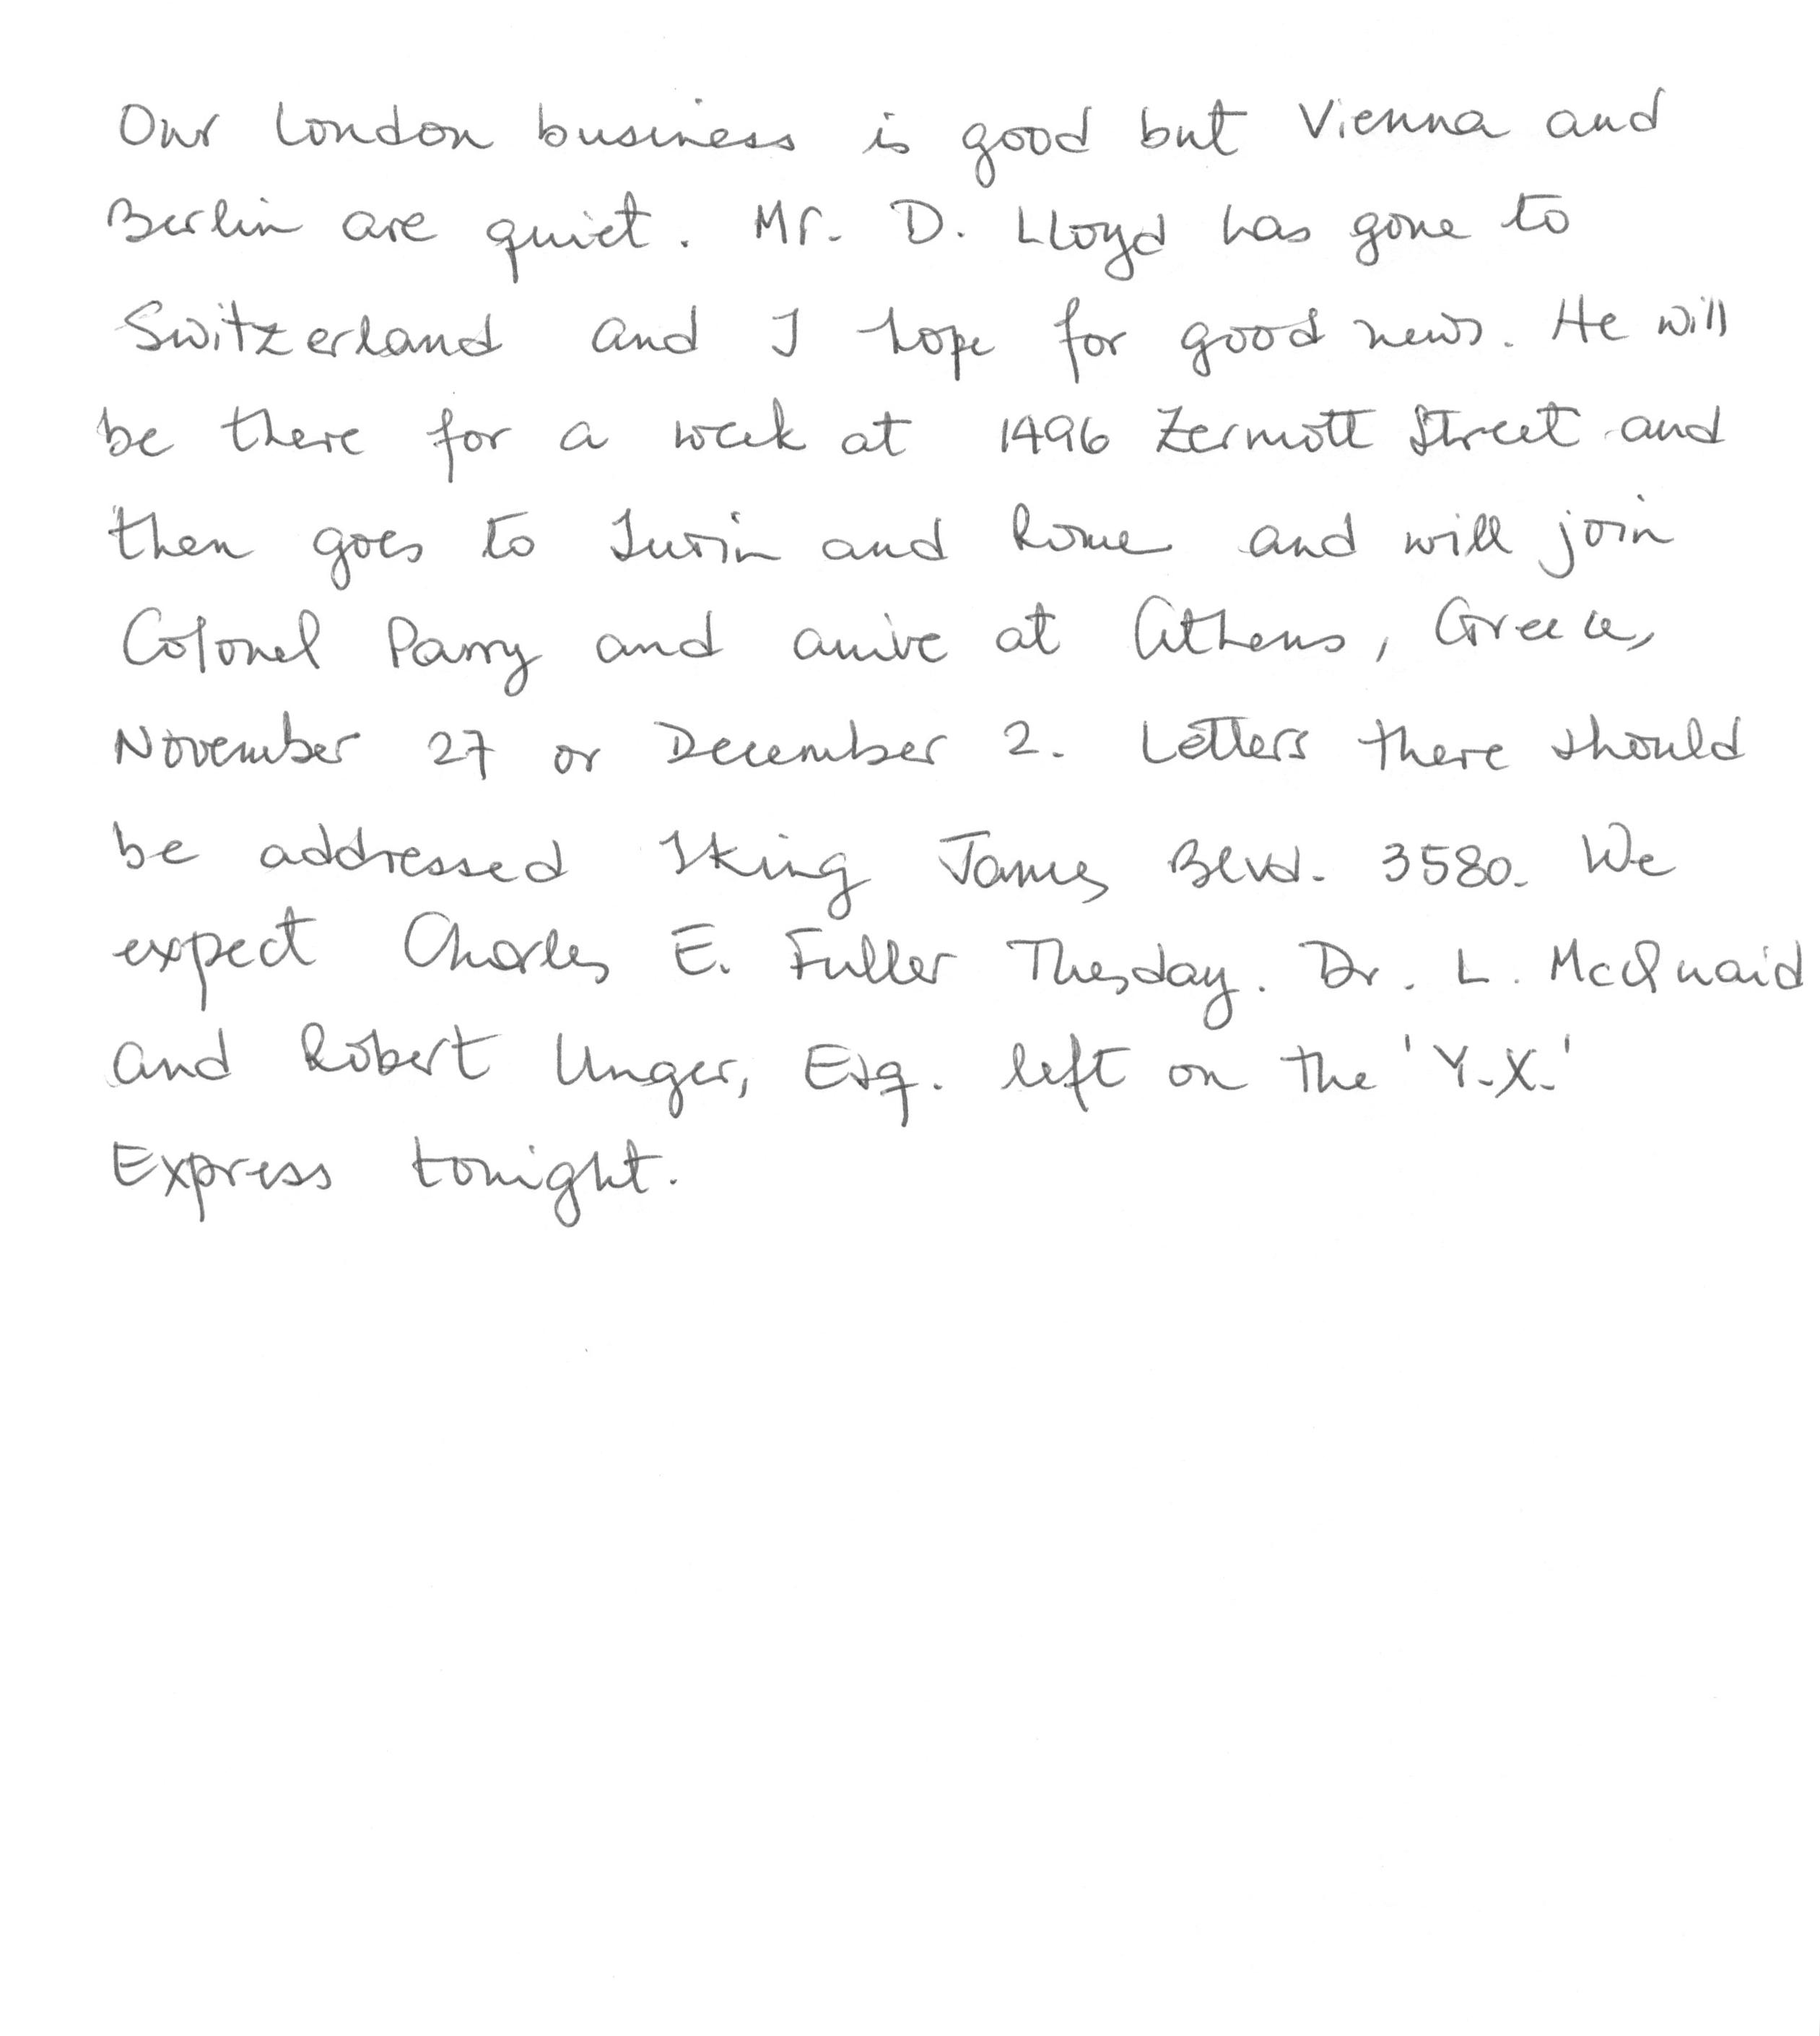 Our London business is good but Vienna and
Berlin are quiet. Mr. D. Lloyd has gone to
Switzerland and I hope for good news. He will
be there for a week at 1496 Zermott Street and
then goes to Turin and Rome and will join
Colonel Parry and arrive at Athens, Greece,
November 27 or December 2. Letters there should
be addressed 1King James Blvd. 3580. We
expect Charles E. Fuller Thesday. Dr. L. McQuaid
and Robert Unger, Esq. left on the 'Y.X.'
Express tonight.